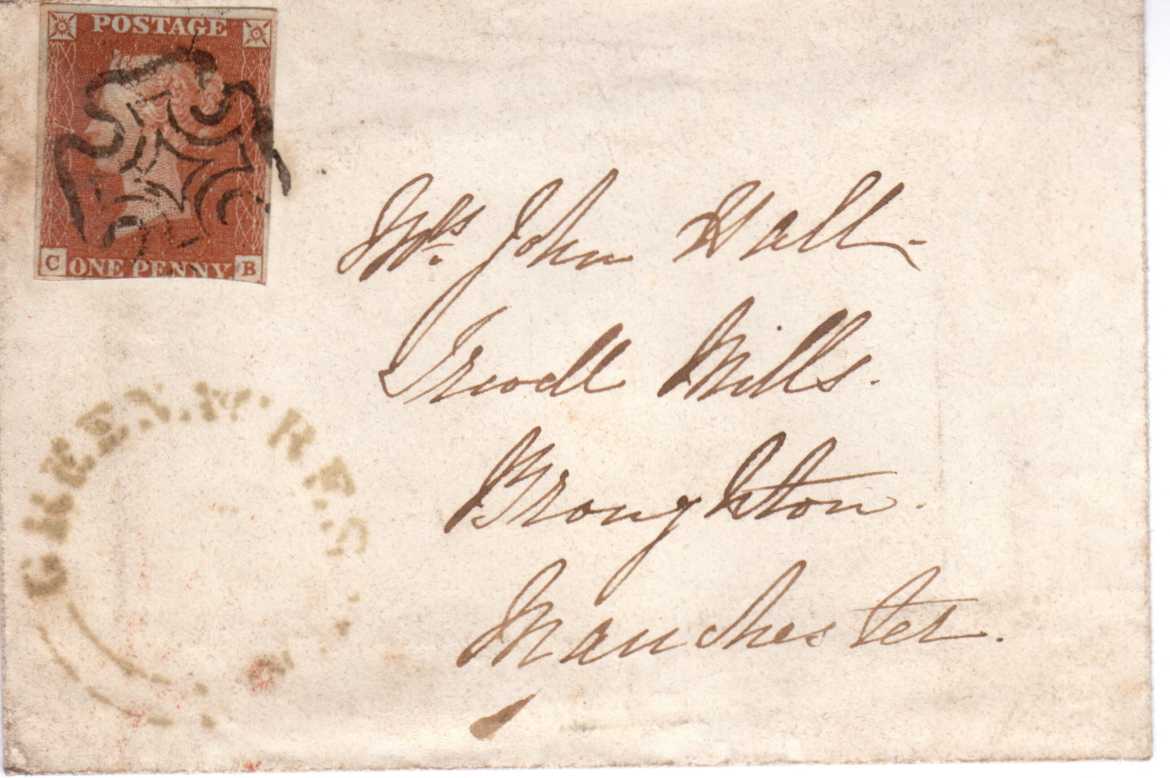 POSTAGE
C ONE PENNY B
Mrs. John Hall
Irwell Mills.
Broughton.
Manchester.